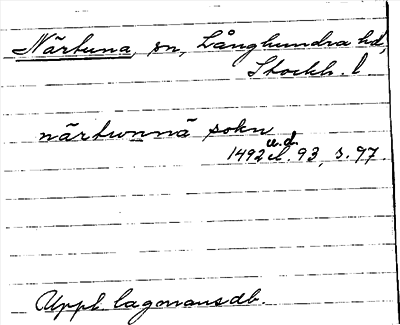 Närtuna, sn, Långhundra hd,
Stockh. l
närtunnä sokn
u.d.
1492 el. 93, s. 97.
Uppl. lagmansdb.